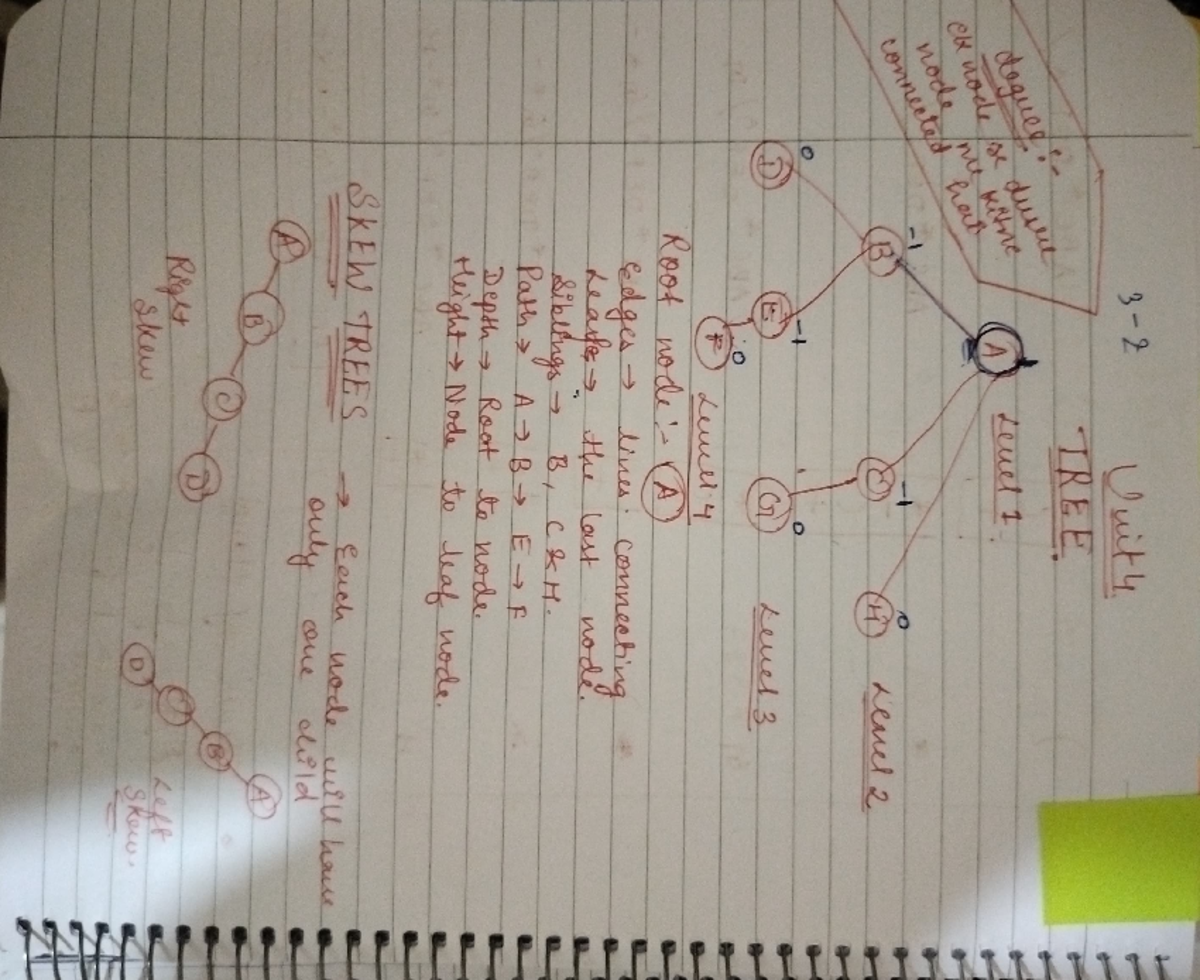 3-2
Unit 4
TREE
degree :-
ek node se dusre
node me kitne
connected hai
A
Level 1
B
-1
C
-1
H
0
Level 2
D
0
E
-1
G
0
Level 3
F
0
Level 4
Root node :- A
Edges → lines connecting
Leafs → the last node.
Siblings → B, C & H.
Path → A → B → E → F
Depth → Root to node.
Height → Node to leaf node.
SKEW TREES → Each node will have
only one child
A
B
C
D
Right
Skew
A
B
C
D
Left
Skew.